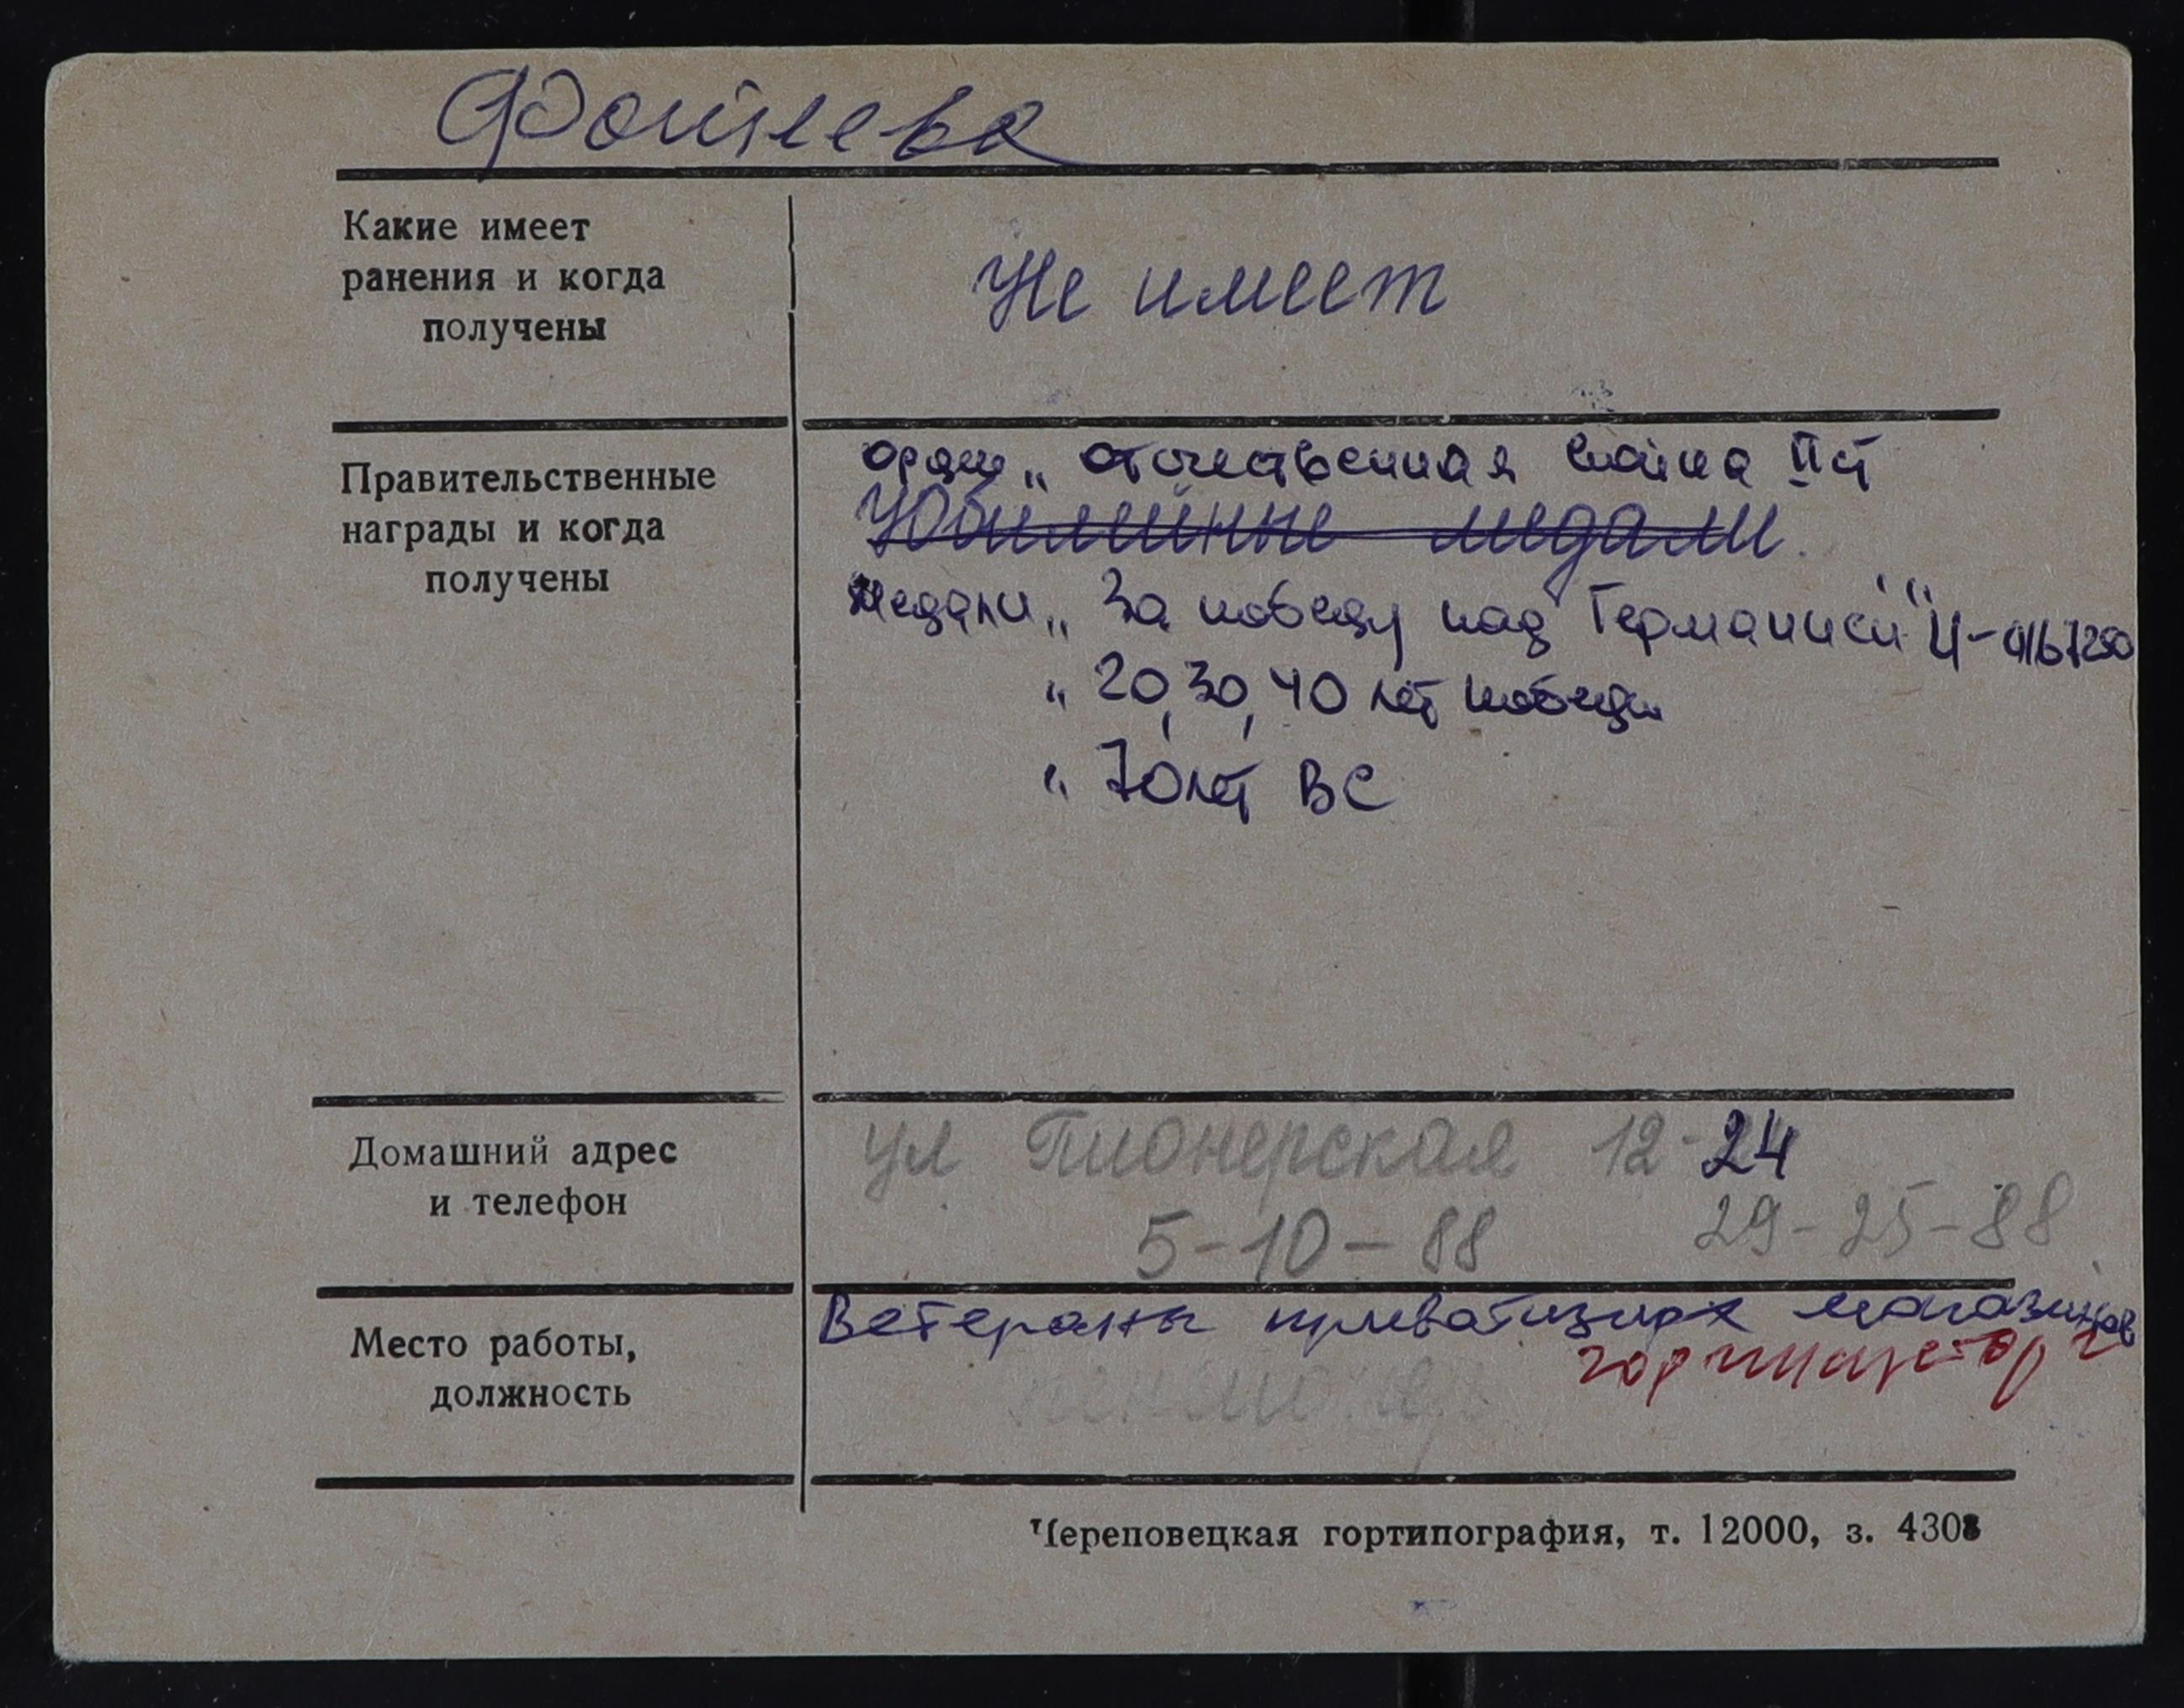 Какие имеет
ранения и когда
получены
Не имеет
Правительственные
награды и когда
получены
орден „ отечественная война II ст
Юбилейные медали.
Медали „ За победу над Германией" Ц-
„ 20, 30, 40 лет победы
„ 70 лет ВС
Домашний адрес
и телефон
ул Пионерская 12-24
5-10-88 29-25-88
Место работы,
должность
Ветераны магазинов
пенсионер
Череповецкая гортипография, т. 12000, з. 4308